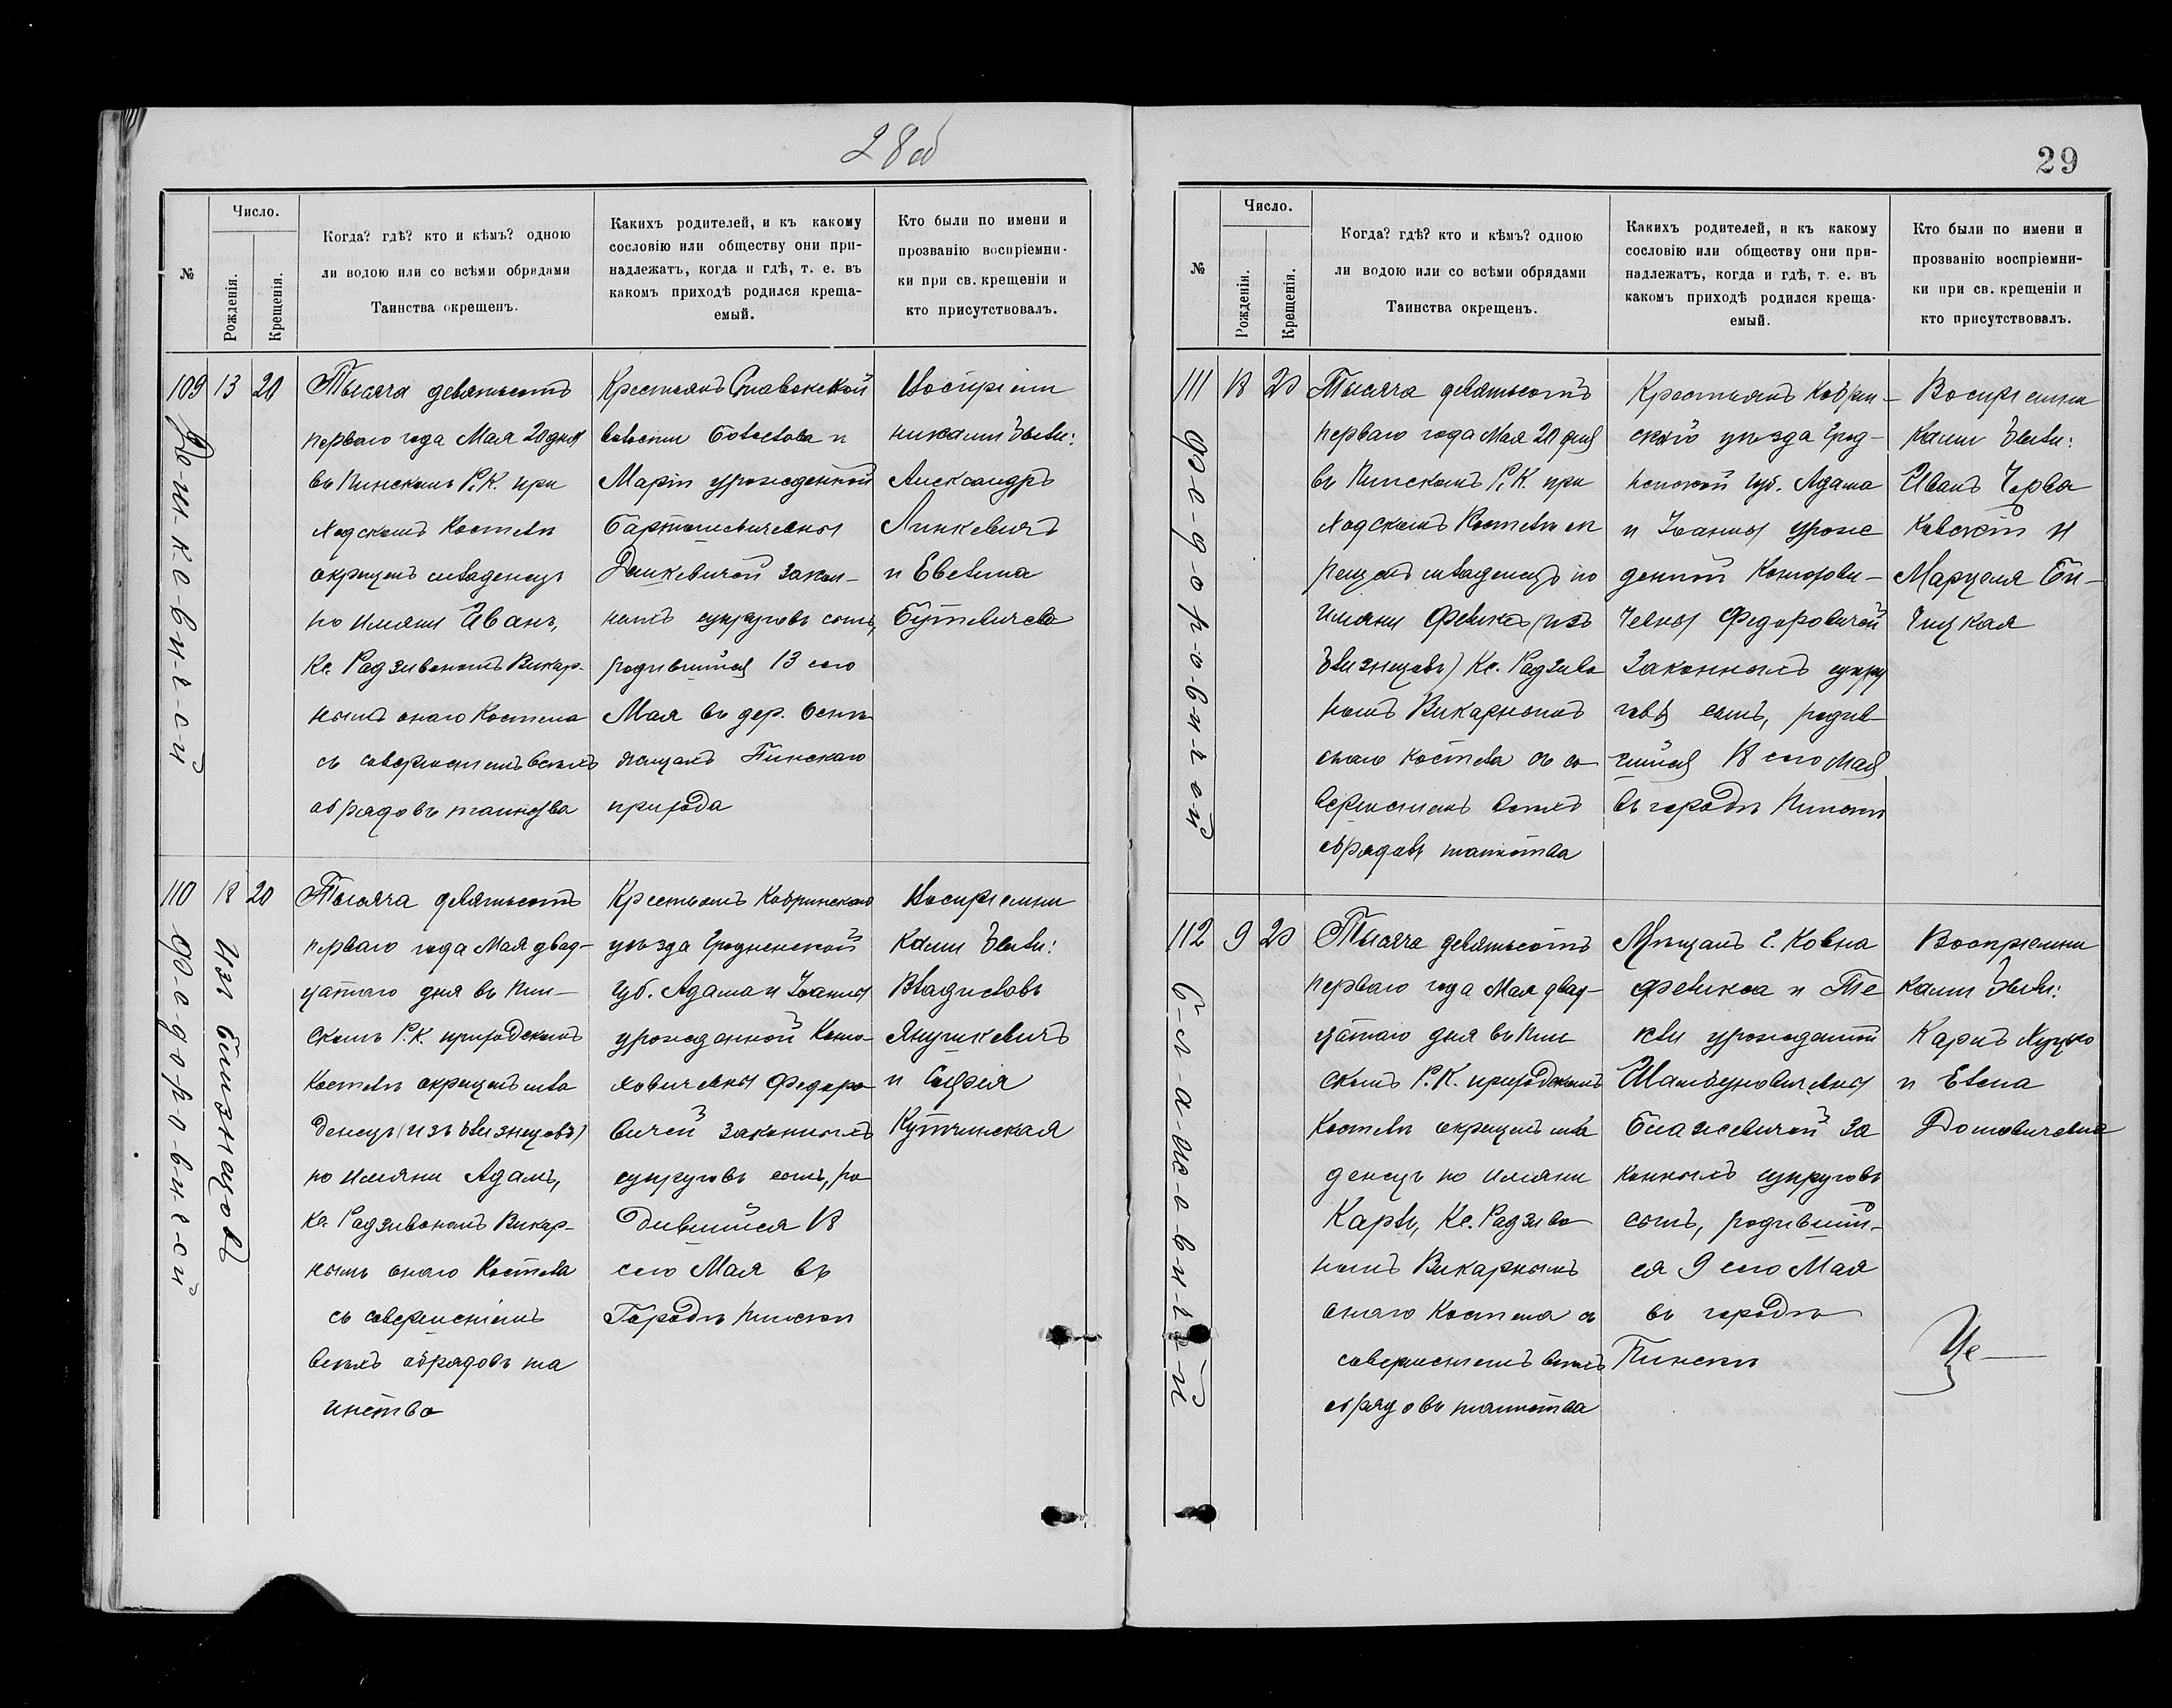 28об
№
Число.
Рожденія.
Крещенія.
Когда? гдѣ? кто и кѣмъ? одною
ли водою или со всѣми обрядами
Таинства окрещенъ.
Какихъ родителей, и къ какому
сословію или обществу они при-
надлежатъ, когда и гдѣ, т. е. въ
какомъ приходѣ родился креща-
емый.
Кто были по имени и
прозванію воспріемни-
ки при св. крещеніи и
кто присутствовалъ.
109 13 20
Тысяча девятьсотъ
перваго года Мая 20 дня
въ Пинскомъ Р. К. при
ходскомъ Костелѣ
окрещенъ младенецъ
по имяни Иванъ,
Кс. Радзивономъ Викар-
нымъ онаго Костела
съ совершеніемъ всѣхъ
обрядовъ таинства
Крестьянъ Ставокской
волости Болеслава и
Маріи урожденной
Бартошевичевны
Домкевичей закон-
ныхъ супруговъ сынъ,
родившійся 13 сего
Мая въ дер.
Пинскаго
прихода
Воспріем
никами были:
Александръ
Линкевичъ
и Евелина
Бутевичева
110 18 20
Федоровичей
изъ близнецовъ
Тысяча девятьсотъ
перваго года Мая двад-
цатаго дня въ Пин-
скомъ Р. К. приходскомъ
Костелѣ окрещенъ мла
денецъ (изъ близнецовъ)
по имяни Адамъ,
Кс. Радзивономъ Викар-
нымъ онаго Костела
съ совершеніемъ
всѣхъ обрядовъ та
инства
Крестьянъ Кобринскаго
уѣзда Гродненской
Губ. Адама и Іоанны
урожденной Коно-
ховичевны Федоро-
вичей законныхъ
супруговъ сынъ, ро
дившійся 18
сего Мая въ
Городѣ Пинскѣ
Воспріемни
ками были:
Владиславъ
Янушкевичъ
и Софія
Кутчинская
29
№
Число.
Рожденія.
Крещенія.
Когда? гдѣ? кто и кѣмъ? одною
ли водою или со всѣми обрядами
Таинства окрещенъ.
Какихъ родителей, и къ какому
сословію или обществу они при-
надлежатъ, когда и гдѣ, т. е. въ
какомъ приходѣ родился креща-
емый.
Кто были по имени и
прозванію воспріемни-
ки при св. крещеніи и
кто присутствовалъ.
111 18 20
Федоровичей
Тысяча девятьсотъ
перваго года Мая 20 дня
въ Пинскомъ Р. К. при
ходскомъ Костелѣ ок
рещенъ младенецъ по
имяни Феликсъ (изъ
близнецовъ) Кс. Радзиво
номъ Викарнымъ
онаго костела съ со
вершеніемъ всѣхъ
обрядовъ таинства
Крестьянъ Кобрин-
скаго уѣзда Грод-
ненской Губ. Адама
и Іоанны урож
денной Конохови-
чевны Федоровичей
законныхъ супру
говъ сынъ, родив-
шійся 18 сего Мая
въ городѣ Пинскѣ
Воспріемни
ками были:
Иванъ Черва
ковскій и
Марцеля Би-
чицкая
112 9 20
Блажевичей
Тысяча девятьсотъ
перваго года Мая двад-
цатаго дня въ Пин
скомъ Р. К. приходскомъ
Костелѣ окрещенъ мла
денецъ по имяни
Карлъ, Кс. Радзиво
номъ Викарнымъ
онаго Костела съ
совершеніемъ всѣхъ
обрядовъ таинства
Мѣщанъ г. Ковна
Феликса и Те
кли урожденной
Шамбуновичевны
Блажевичей за
конныхъ супруговъ
сынъ, родившій-
ся 9 сего Мая
въ городѣ
Пинскѣ
Воспріемни
ками были:
Карлъ Луцко
и Елена
Домовичевна